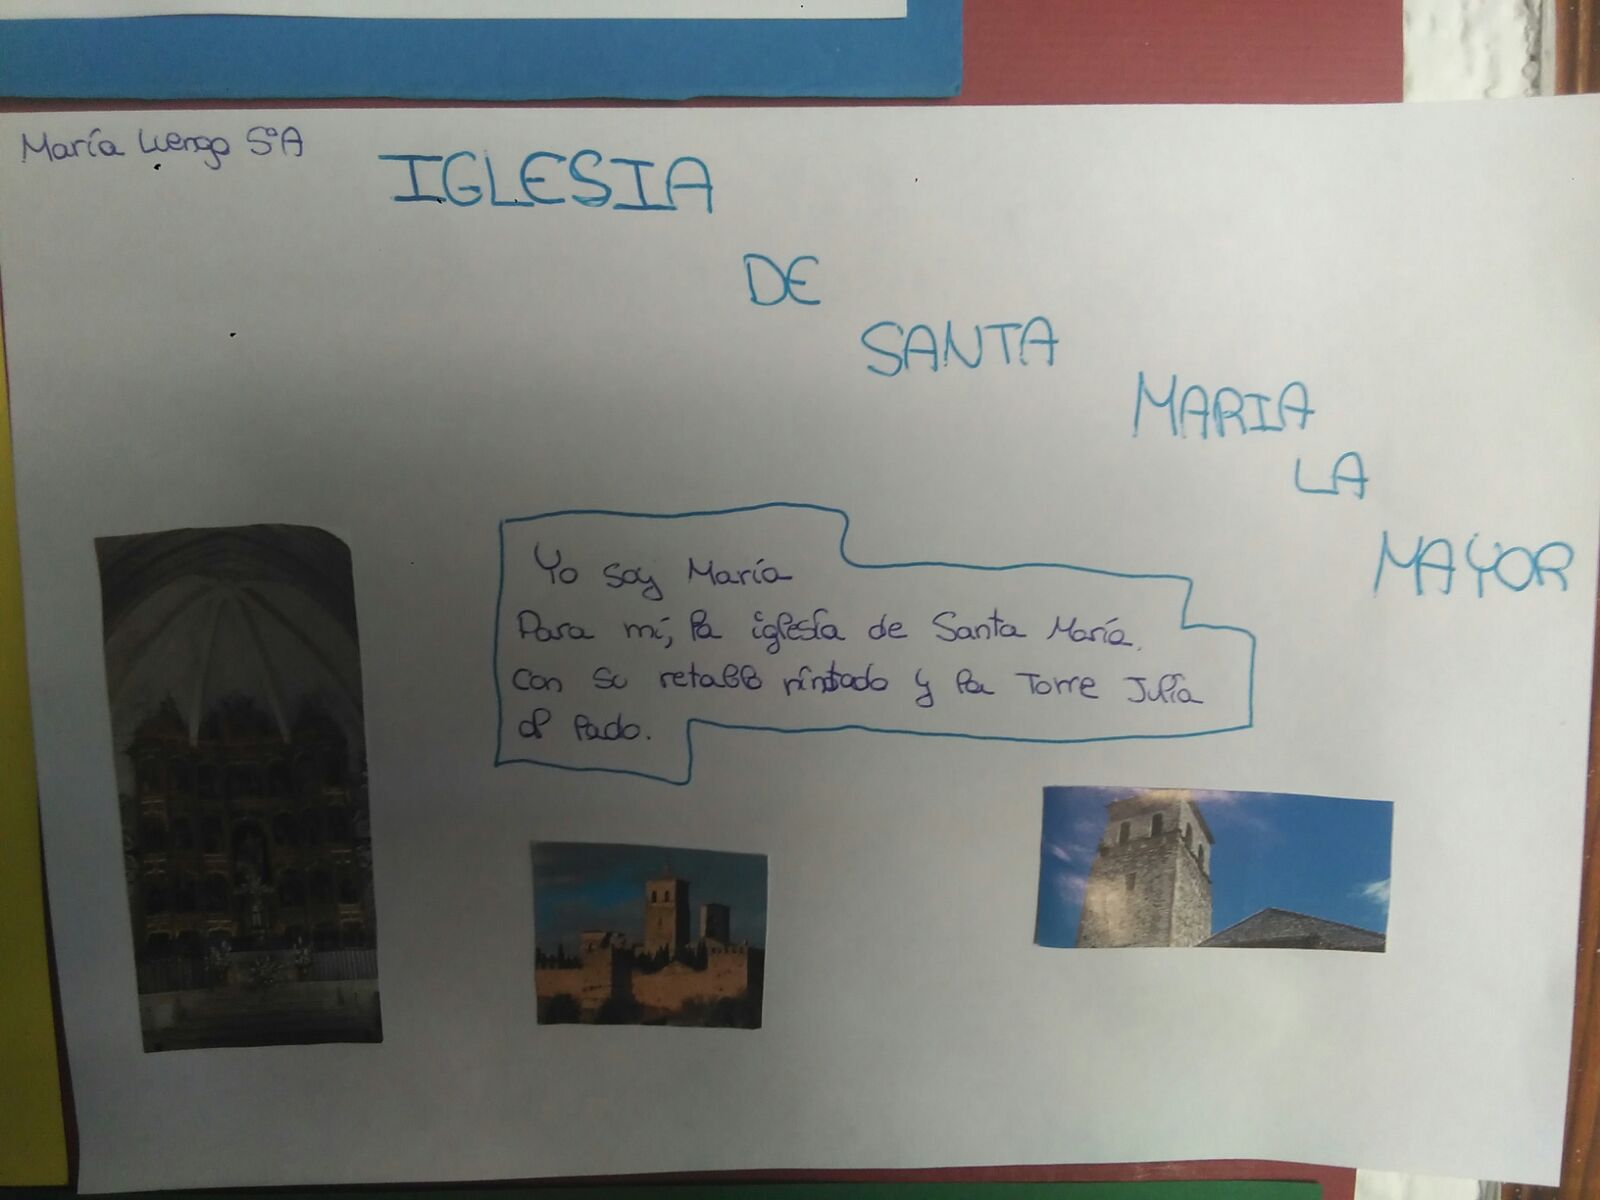 María Luengo 5ºA
IGLESIA
DE
SANTA
MARIA
LA
MAYOR
Yo soy María
Para mí, la iglesia de Santa María.
con su retablo pintado y la Torre Julia
al lado.